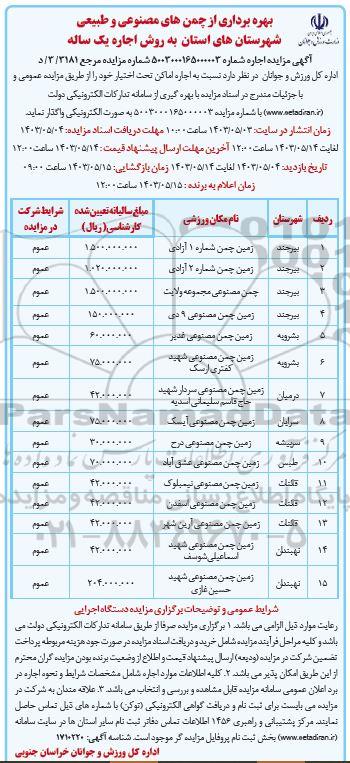 بهره برداری از چمن های مصنوعی و طبیعی
شهرستان های استان به روش اجاره یک ساله
وزارت ورزش و جوانان
آگهی مزایده اجاره شماره ۵۰۰۳۰۰۰۱۶۵۰۰۰۰۰۳ شماره مزایده مرجع ۳۱۸۱/ ۳/ د
اداره کل ورزش و جوانان در نظر دارد نسبت به اجاره اماکن تحت اختیار خود را از طریق مزایده عمومی و
با جزئیات مندرج در اسناد مزایده با بهره گیری از سامانه تدارکات الکترونیکی دولت
(www.setadiran.ir) با شماره مزایده ۵۰۰۳۰۰۰۱۶۵۰۰۰۰۰۳ به صورت الکترونیکی واگذار نماید.
زمان انتشار در سایت: ۱۴۰۳/۰۵/۰۳ ساعت ۱۰:۰۰ مهلت دریافت اسناد مزایده: ۱۴۰۳/۰۵/۰۴
لغایت ۱۴۰۳/۰۵/۱۴ ساعت ۱۲:۰۰ آخرین مهلت ارسال پیشنهاد قیمت: ۱۴۰۳/۰۵/۱۴ ساعت ۱۲:۰۰
تاریخ بازدید: ۱۴۰۳/۰۵/۰۴ لغایت ۱۴۰۳/۰۵/۱۴ زمان بازگشایی: ۱۴۰۳/۰۵/۱۵ ساعت ۰۹:۰۰
زمان اعلام به برنده: ۱۴۰۳/۰۵/۱۵ ساعت ۱۲:۰۰
ردیف شهرستان نام مکان ورزشی مبلغ سالیانه تعیین شده کارشناسی (ریال) شرایط شرکت در مزایده
۱ بیرجند زمین چمن شماره ۱ آزادی ۱.۵۰۰.۰۰۰.۰۰۰ عموم
۲ بیرجند زمین چمن شماره ۲ آزادی ۱.۰۲۰.۰۰۰.۰۰۰ عموم
۳ بیرجند چمن مصنوعی مجموعه ولایت ۱.۵۰۰.۰۰۰.۰۰۰ عموم
۴ بیرجند زمین چمن مصنوعی ۹ دی ۱۵۰.۰۰۰.۰۰۰ عموم
۵ بشرویه زمین چمن مصنوعی غدیر ۶۰.۰۰۰.۰۰۰ عموم
۶ بشرویه زمین چمن مصنوعی شهید کفتری ارسک ۷۵.۰۰۰.۰۰۰ عموم
۷ درمیان زمین چمن مصنوعی سردار شهید حاج قاسم سلیمانی اسدیه ۴۲.۰۰۰.۰۰۰ عموم
۸ سرایان زمین چمن مصنوعی آیسک ۷۵.۰۰۰.۰۰۰ عموم
۹ سربیشه زمین چمن مصنوعی درح ۳۰.۰۰۰.۰۰۰ عموم
۱۰ طبس زمین چمن مصنوعی عشق آباد ۷۰.۰۰۰.۰۰۰ عموم
۱۱ قائنات زمین چمن مصنوعی نیمبلوک ۴۲.۰۰۰.۰۰۰ عموم
۱۲ قائنات زمین چمن مصنوعی اسفدن ۴۲.۰۰۰.۰۰۰ عموم
۱۳ قائنات زمین چمن مصنوعی آرین شهر ۴۲.۰۰۰.۰۰۰ عموم
۱۴ نهبندان زمین چمن مصنوعی شهید اسماعیلی شوسف ۴۲.۰۰۰.۰۰۰ عموم
۱۵ نهبندان زمین چمن مصنوعی شهید حسین غازی ۲۰۴.۰۰۰.۰۰۰ عموم
شرایط عمومی و توضیحات برگزاری مزایده دستگاه اجرایی
رعایت موارد ذیل الزامی می باشد. ۱. برگزاری مزایده صرفا از طریق سامانه تدارکات الکترونیکی دولت می
باشد و کلیه مراحل فرآیند مزایده شامل خرید و دریافت اسناد مزایده در صورت جود هزینه مربوطه پرداخت
تضمین شرکت در مزایده (ودیعه) ارسال پیشنهاد قیمت و اطلاع از وضعیت برنده بودن مزایده گران محترم
از این طریق امکان پذیر می باشد. ۲. کلیه اطلاعات موارد اجاره شامل مشخصات شرایط و نحوه اجاره در
برد اعلان عمومی سامانه مزایده قابل مشاهده و بررسی و انتخاب می باشد. ۳. علاقه مندان به شرکت در
مزایده می بایست برای ثبت نام و دریافت گواهی الکترونیکی (توکن) با شماره های ذیل تماس حاصل
نمایند. مرکز پشتیبانی و راهبری ۱۴۵۶ اطلاعات تماس دفاتر ثبت نام سایر استان ها در سایت سامانه
(www.setadiran.ir) بخش ثبت نام پروفایل مزایده گر موجود است. شناسه آگهی: ۱۷۱۰۲۲۰
اداره کل ورزش و جوانان خراسان جنوبی